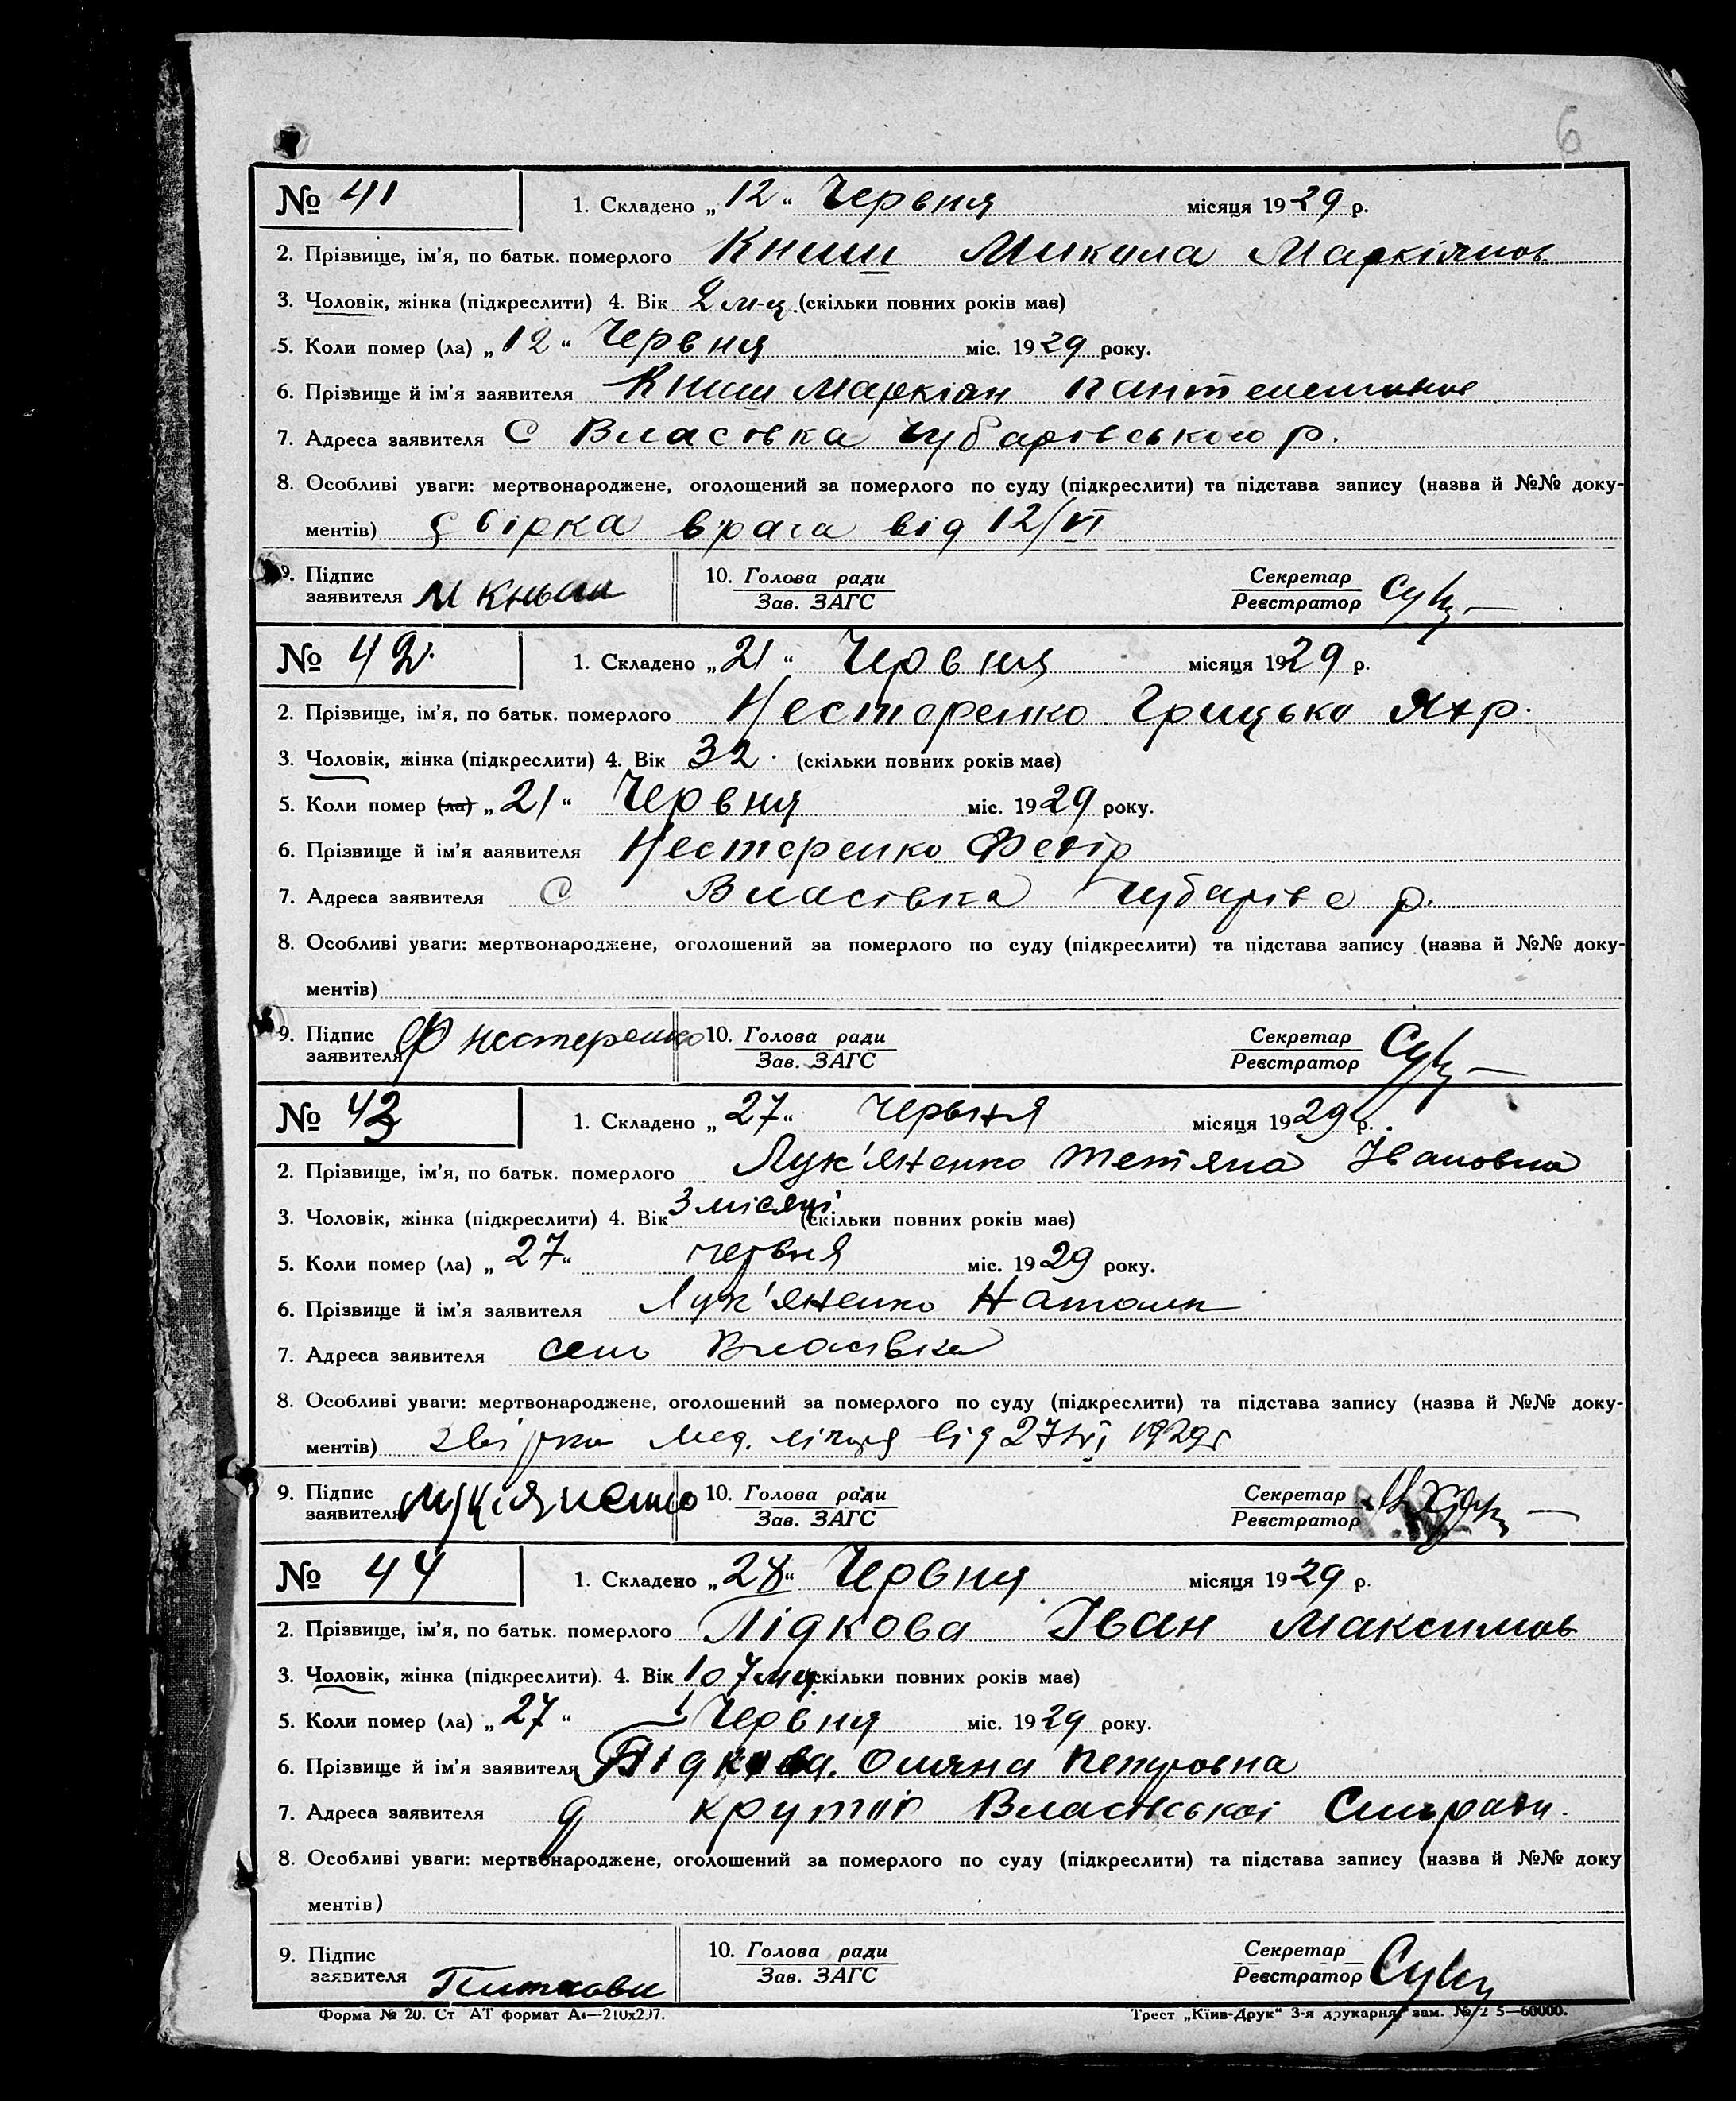 6
№ 41 1. Складено „12“ Червня місяця 1929 р.
2. Прізвище, ім'я, по батьк. померлого Книш Микола Маркіянов
3. Чоловік, жінка (підкреслити) 4. Вік 2 м-ц. (скільки повних років має)
5. Коли помер (ла) „12“ Червня міс. 1929 року.
6. Прізвище й ім'я заявителя Книш Маркіян
7. Адреса заявителя С Власівка Чубарівського р.
8. Особливі уваги: мертвонароджене, оголошений за померлого по суду (підкреслити) та підстава запису (назва й №№ доку-
ментів) врача від 12/VI
9. Підпис заявителя М Книш 10. Голова ради Зав. ЗАГС Секретар Реєстратор
№ 42. 1. Складено „21“ Червня місяця 1929 р.
2. Прізвище, ім'я, по батьк. померлого Нестеренко Грицько
3. Чоловік, жінка (підкреслити) 4. Вік 32. (скільки повних років має)
5. Коли помер (ла) „21“ Червня міс. 1929 року.
6. Прізвище й ім'я заявителя Нестеренко Федір
7. Адреса заявителя С Власівка Чубарівс р.
8. Особливі уваги: мертвонароджене, оголошений за померлого по суду (підкреслити) та підстава запису (назва й №№ доку-
ментів)
9. Підпис заявителя Ф Нестеренко 10. Голова ради Зав. ЗАГС Секретар Реєстратор
№ 43 1. Складено „27“ Червня місяця 1929 р.
2. Прізвище, ім'я, по батьк. померлого Лук'яненко Тетяна Івановна
3. Чоловік, жінка (підкреслити) 4. Вік 3 місяці (скільки повних років має)
5. Коли помер (ла) „27“ червня міс. 1929 року.
6. Прізвище й ім'я заявителя Лук'яненко
7. Адреса заявителя село Власівка
8. Особливі уваги: мертвонароджене, оголошений за померлого по суду (підкреслити) та підстава запису (назва й №№ доку-
ментів) від 27/VI 1929 г
9. Підпис заявителя 10. Голова ради Зав. ЗАГС Секретар Реєстратор
№ 44 1. Складено „28“ Червня місяця 1929 р.
2. Прізвище, ім'я, по батьк. померлого Підкова Іван Максимов
3. Чоловік, жінка (підкреслити). 4. Вік (скільки повних років має)
5. Коли помер (ла) „27“ Червня міс. 1929 року.
6. Прізвище й ім'я заявителя Підкова. Оляна Петровна
7. Адреса заявителя Власівської Сільради.
8. Особливі уваги: мертвонароджене, оголошений за померлого по суду (підкреслити) та підстава запису (назва й №№ доку
ментів)
9. Підпис заявителя 10. Голова ради Зав. ЗАГС Секретар Реєстратор
Форма № 20. Ст АТ формат А4—210х297. Трест „Київ-Друк“ 3-я друкарня, зам. №